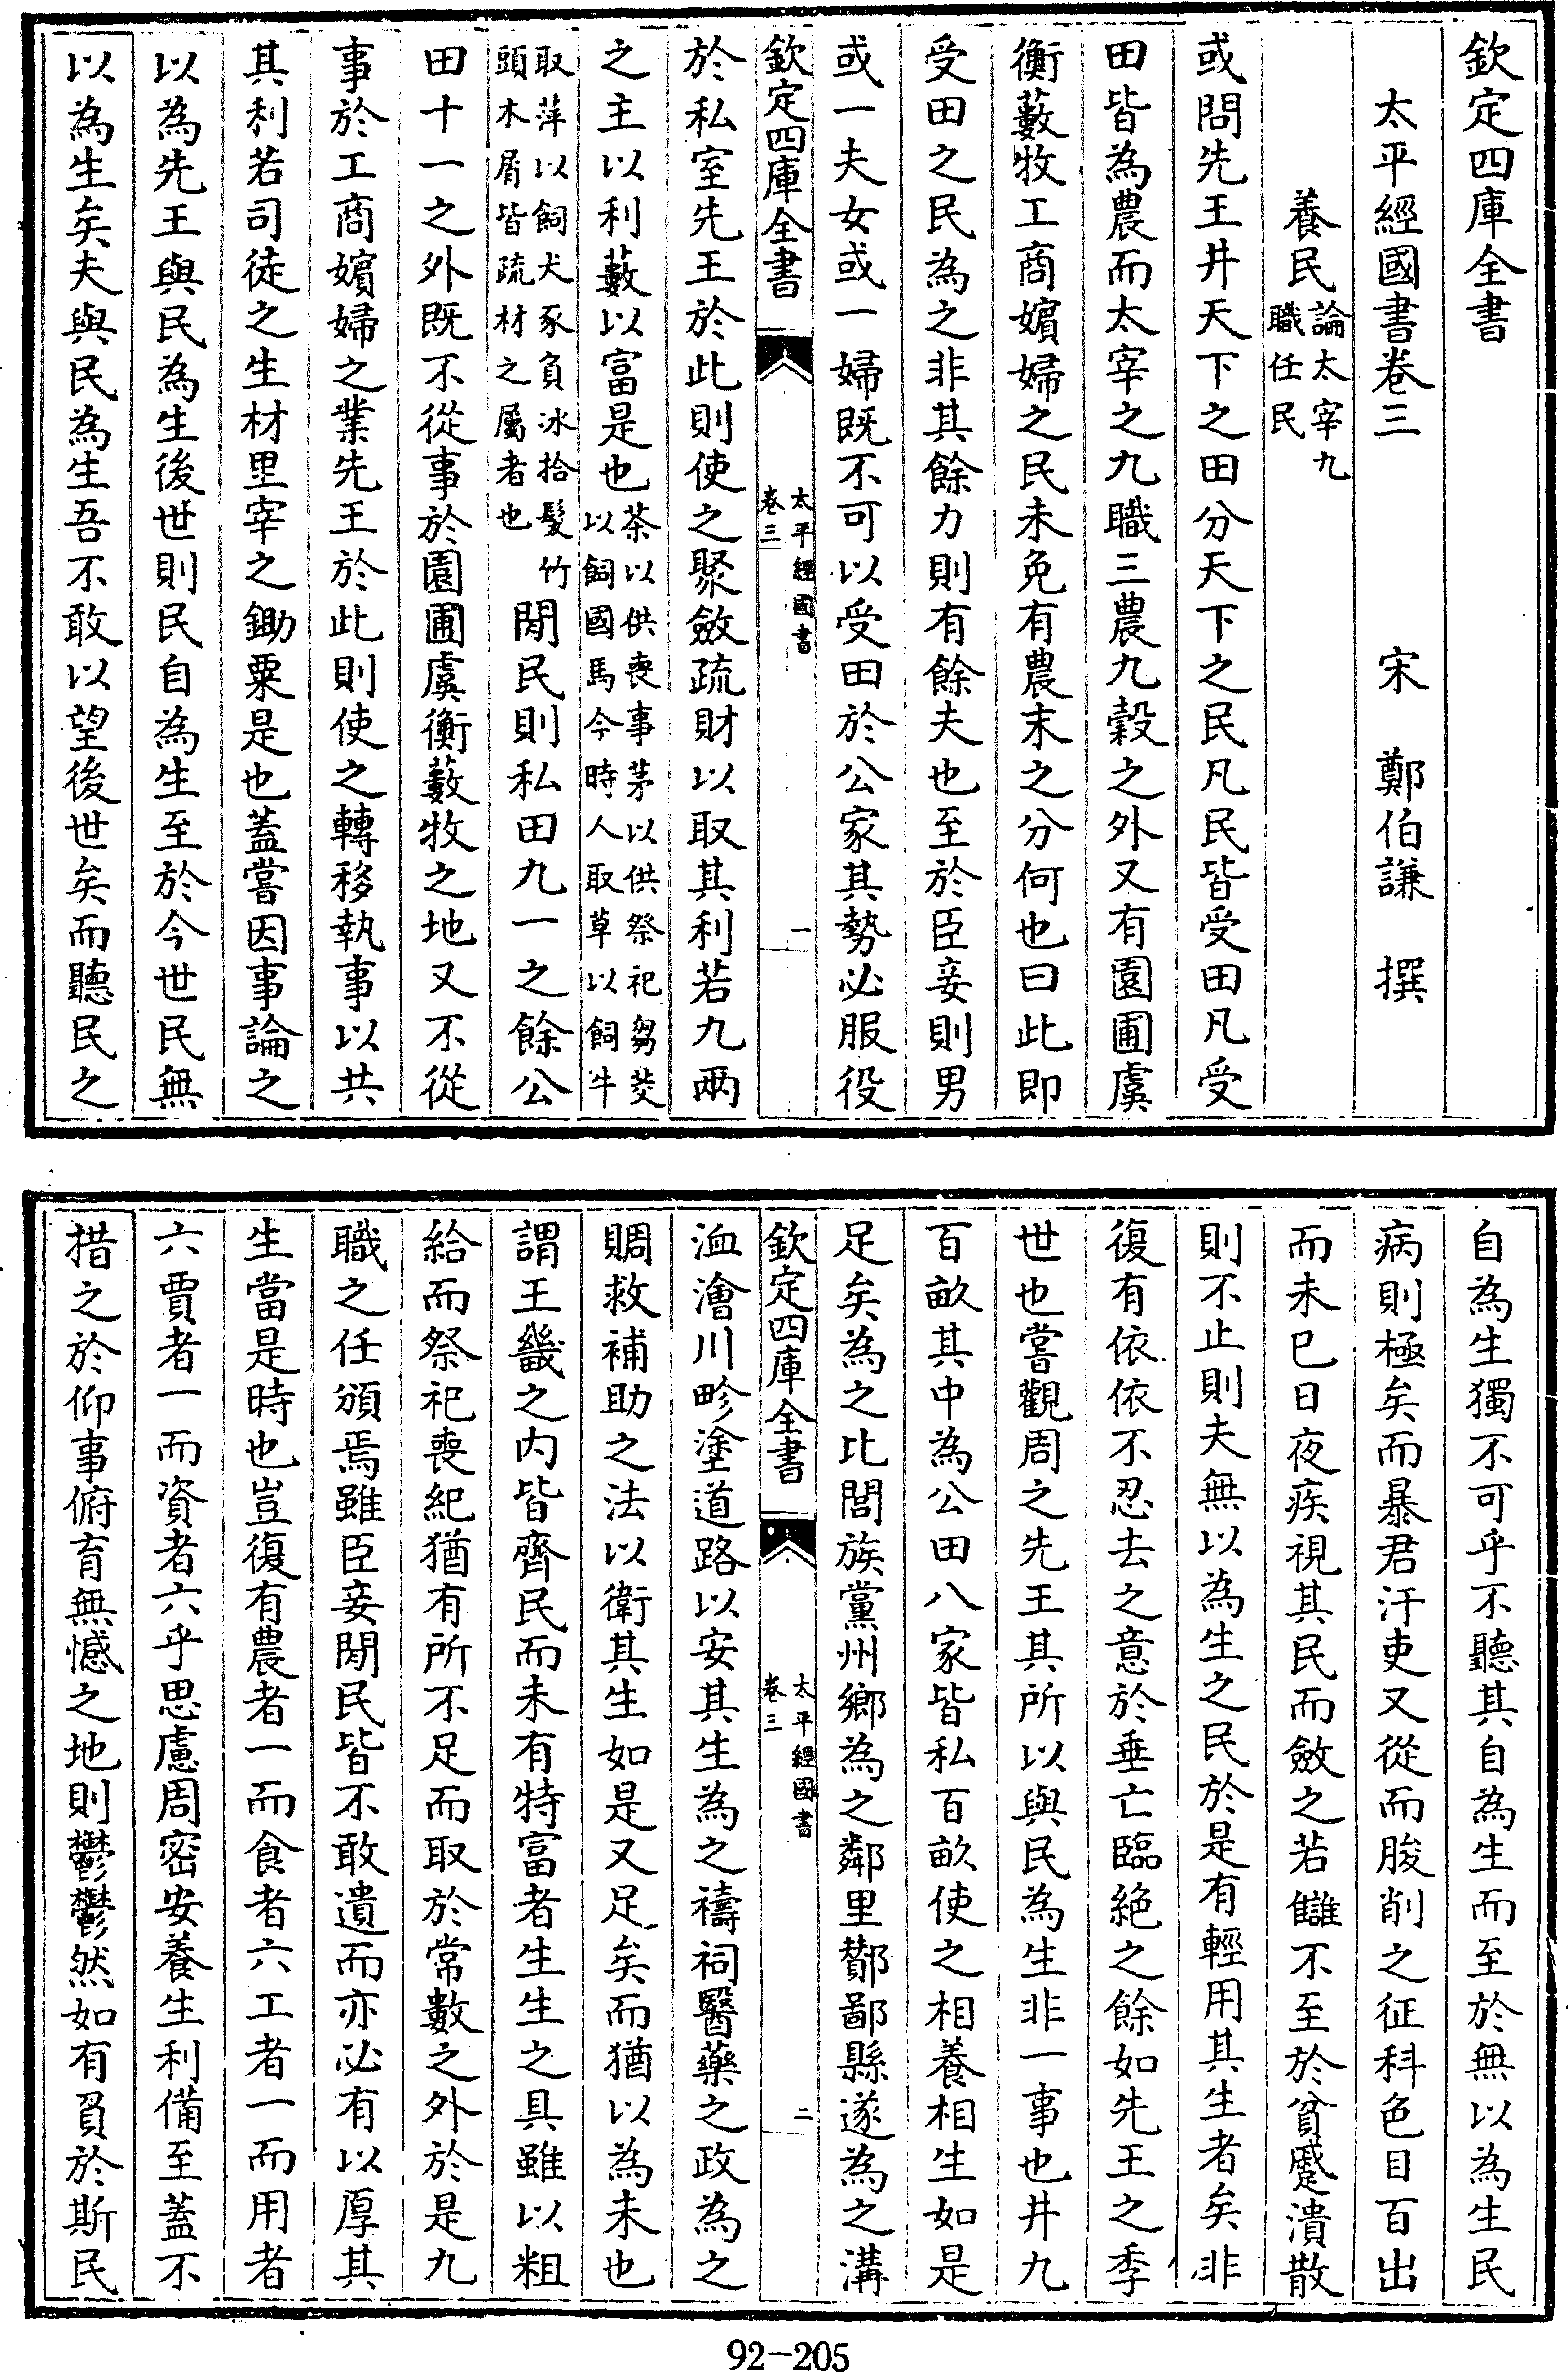 欽定四庫全書
太平經國書卷三　宋　鄭伯謙　撰
養民論太宰九職任民
或問先王井天下之田分天下之民凡民皆受田凡受
田皆為農而太宰之九職三農九穀之外又有園圃虞
衡藪牧工商嬪婦之民未免有農末之分何也曰此即
受田之民為之非其餘力則有餘夫也至於臣妾則男
或一夫女或一婦既不可以受田於公家其勢必服役
欽定四庫全書　太平經國書　卷三　一
於私室先王於此則使之聚斂疏財以取其利若九兩
之主以利藪以富是也荼以供喪事茅以供祭祀芻茭以飼國馬今時人取草以飼牛
取萍以飼犬豕負冰拾髮竹頭木屑皆疏材之屬者也閒民則私田九一之餘公
田十一之外既不從事於園圃虞衡藪牧之地又不從
事於工商嬪婦之業先王於此則使之轉移執事以共
其利若司徒之生材里宰之鋤粟是也蓋嘗因事論之
以為先王與民為生後世則民自為生至於今世民無
以為生矣夫與民為生吾不敢以望後世矣而聽民之
自為生獨不可乎不聽其自為生而至於無以為生民
病則極矣而暴君汙吏又從而朘削之征科色目百出
而未已日夜疾視其民而斂之若讎不至於貧蹙潰散
則不止則夫無以為生之民於是有輕用其生者矣非
復有依依不忍去之意於垂亡臨絶之餘如先王之季
世也嘗觀周之先王其所以與民為生非一事也井九
百畝其中為公田八家皆私百畝使之相養相生如是
足矣為之比閭族黨州鄉為之鄰里酇鄙縣遂為之溝
欽定四庫全書　太平經國書　卷三　二
洫澮川畛塗道路以安其生為之禱祠醫藥之政為之
賙救補助之法以衛其生如是又足矣而猶以為未也
謂王畿之内皆齊民而未有特富者生生之具雖以粗
給而祭祀喪紀猶有所不足而取於常數之外於是九
職之任頒焉雖臣妾閒民皆不敢遺而亦必有以厚其
生當是時也豈復有農者一而食者六工者一而用者
六賈者一而資者六乎思慮周密安養生利備至蓋不
措之於仰事俯育無憾之地則鬱鬱然如有負於斯民
92-205